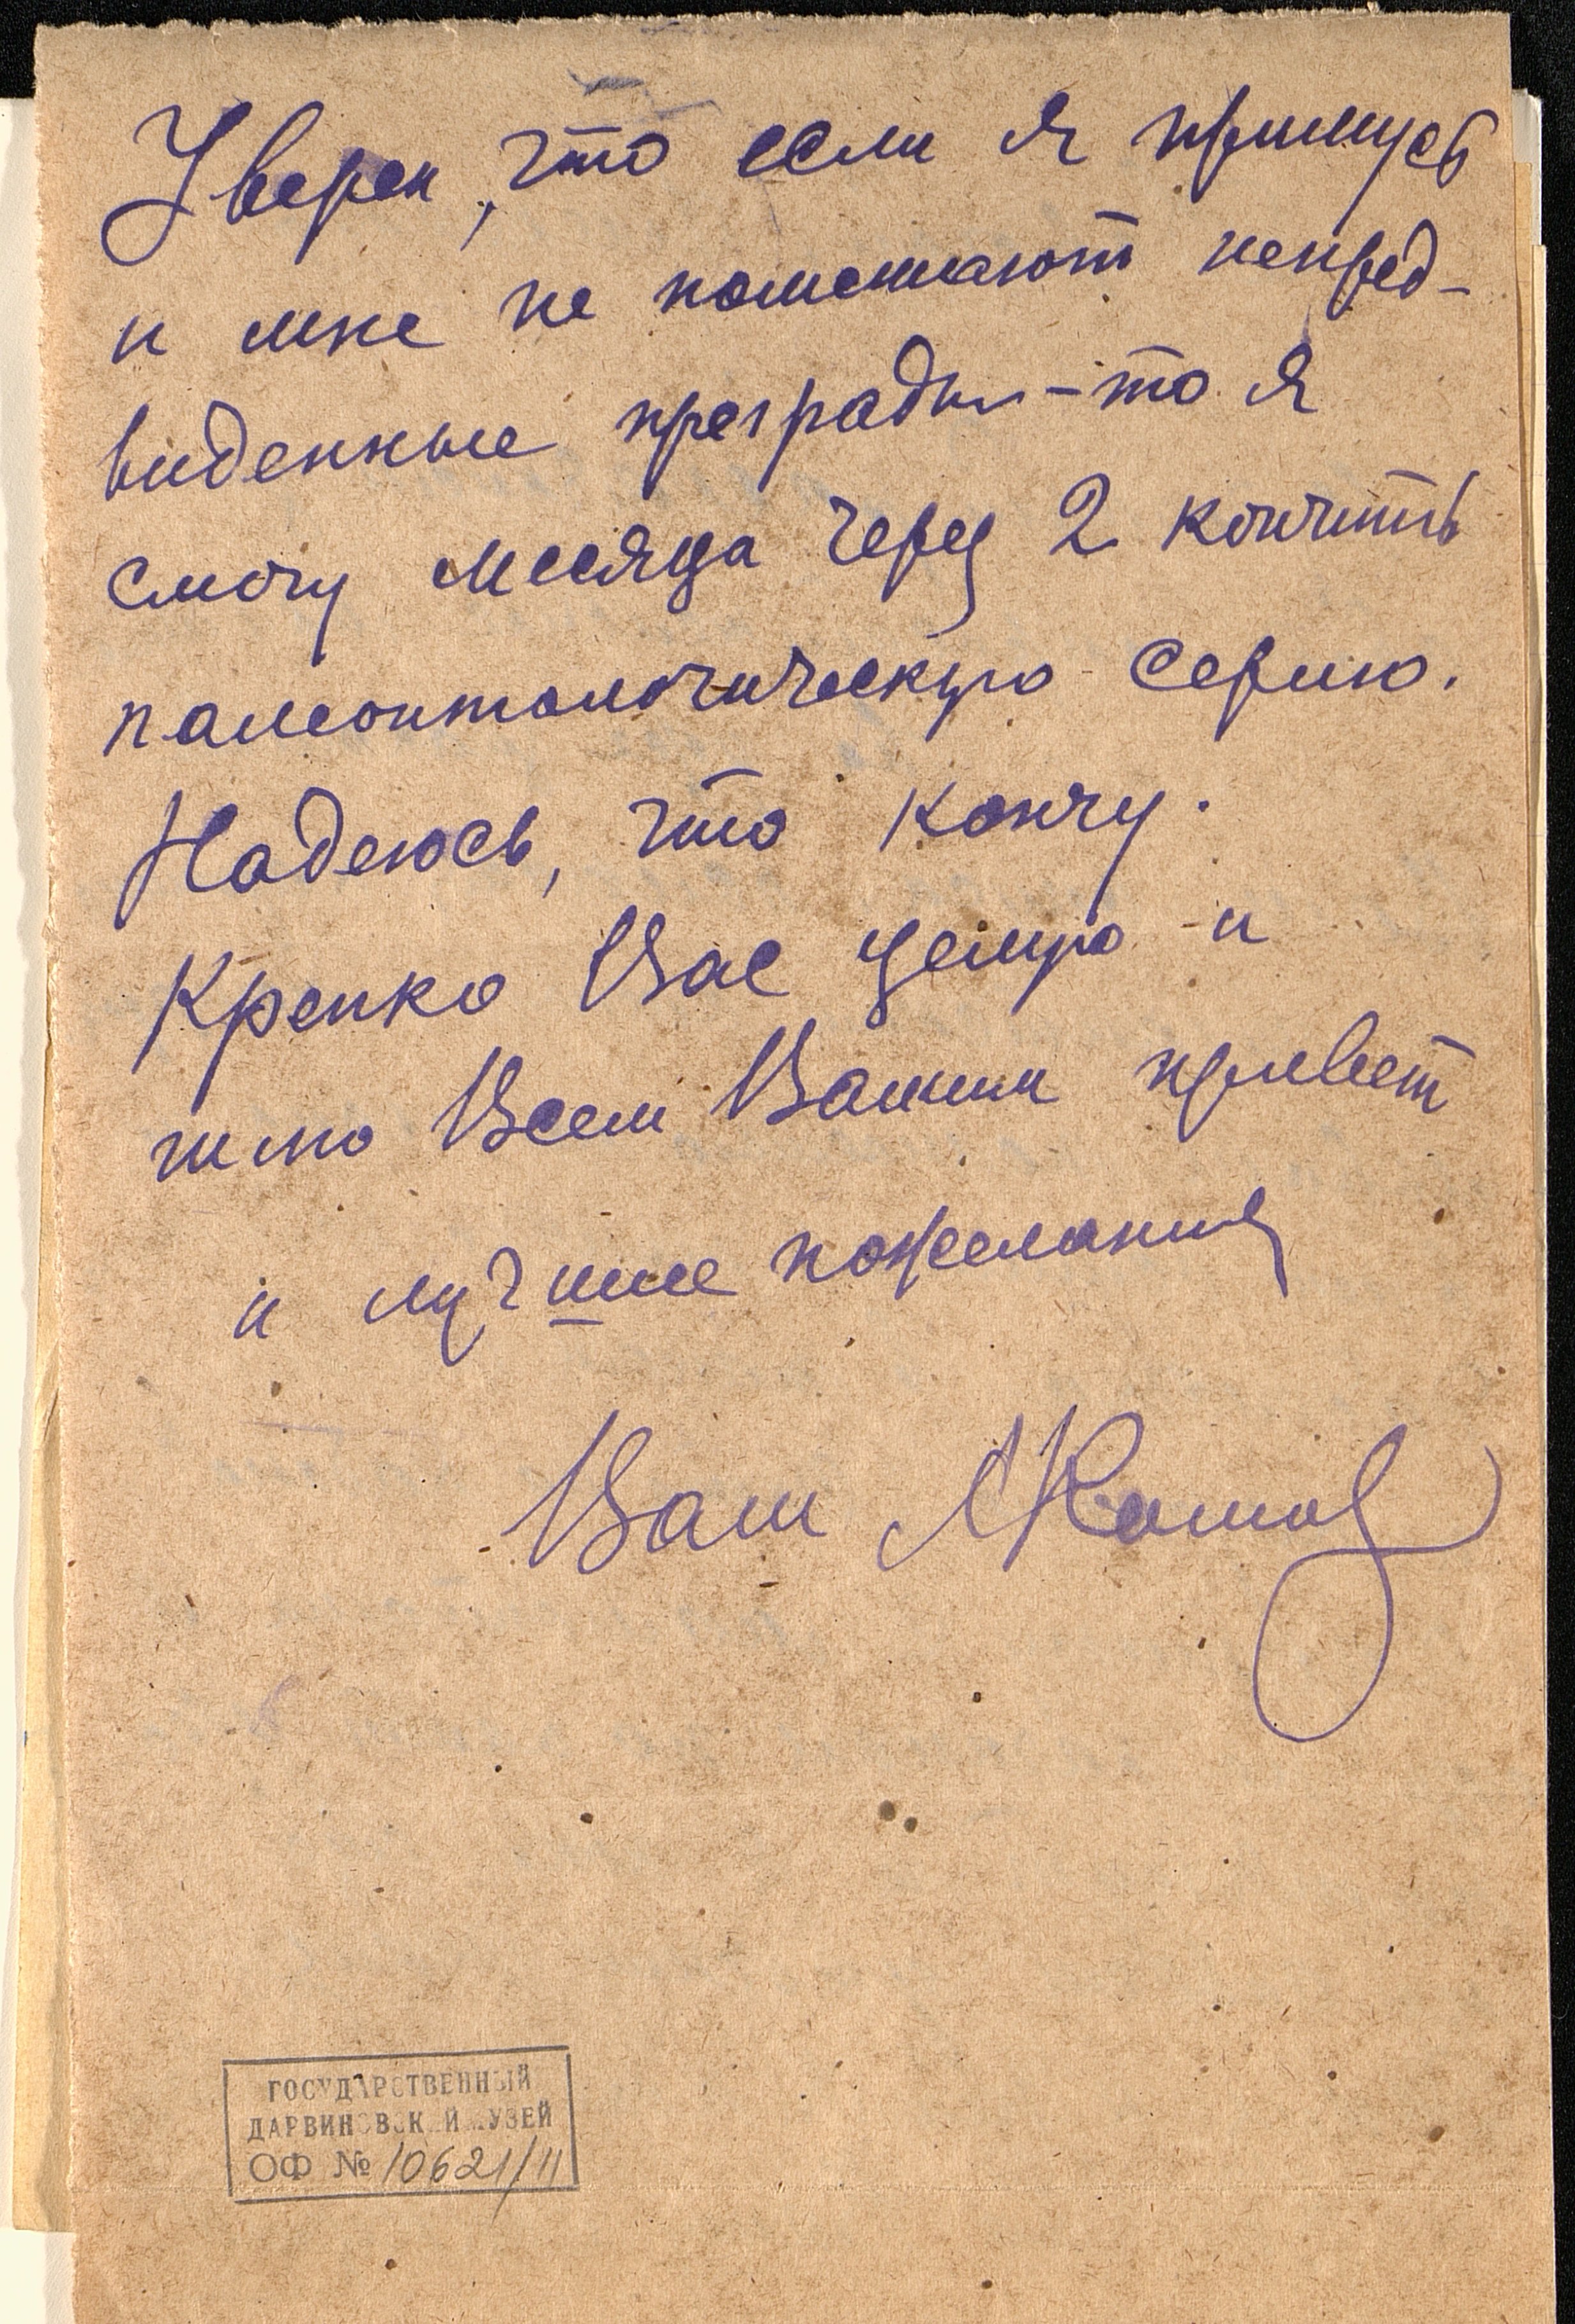 Уверен, что если я примусь
и мне не помешают непред-
виденные преграды – то я
смогу месяца через 2 кончить
палеонтологическую серию.
Надеюсь, что кончу.
Крепко Вас целую и
шлю Всем Вашим привет
и лучшие пожелания
Ваш
ГОСУДАРСТВЕННЫЙ
ДАРВИНОВСКИЙ МУЗЕЙ
ОФ № 10621/11